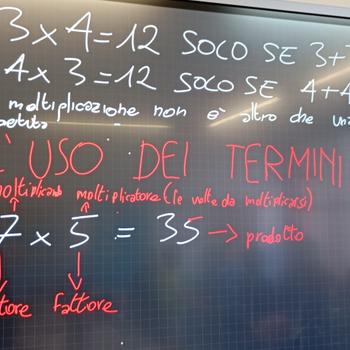 3 x 4 = 12 SOLO SE 3+
4 x 3 = 12 SOLO SE 4+4
moltiplicazione non è altro che un
USO DEI TERMINI
moltiplicando moltiplicatore (le volte da moltiplicarsi)
7 x 5 = 35 → prodotto
fattore